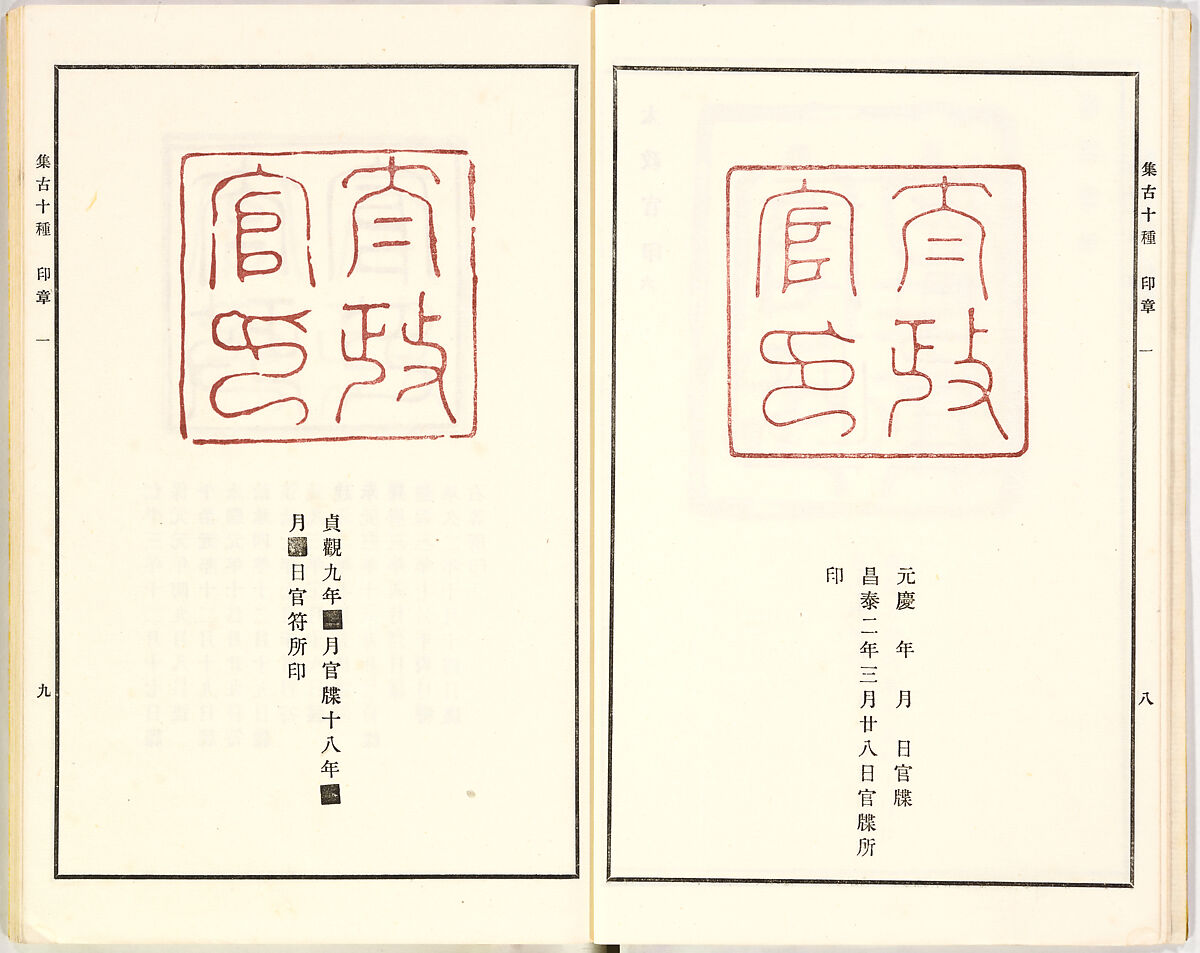 集古十種 印章 一
八
太政
官印
元慶 年 月 日官牒
昌泰二年三月廿八日官牒所
印
太政
官印
貞觀九年■月官牒十八年■
月■日官符所印
集古十種 印章 一
九